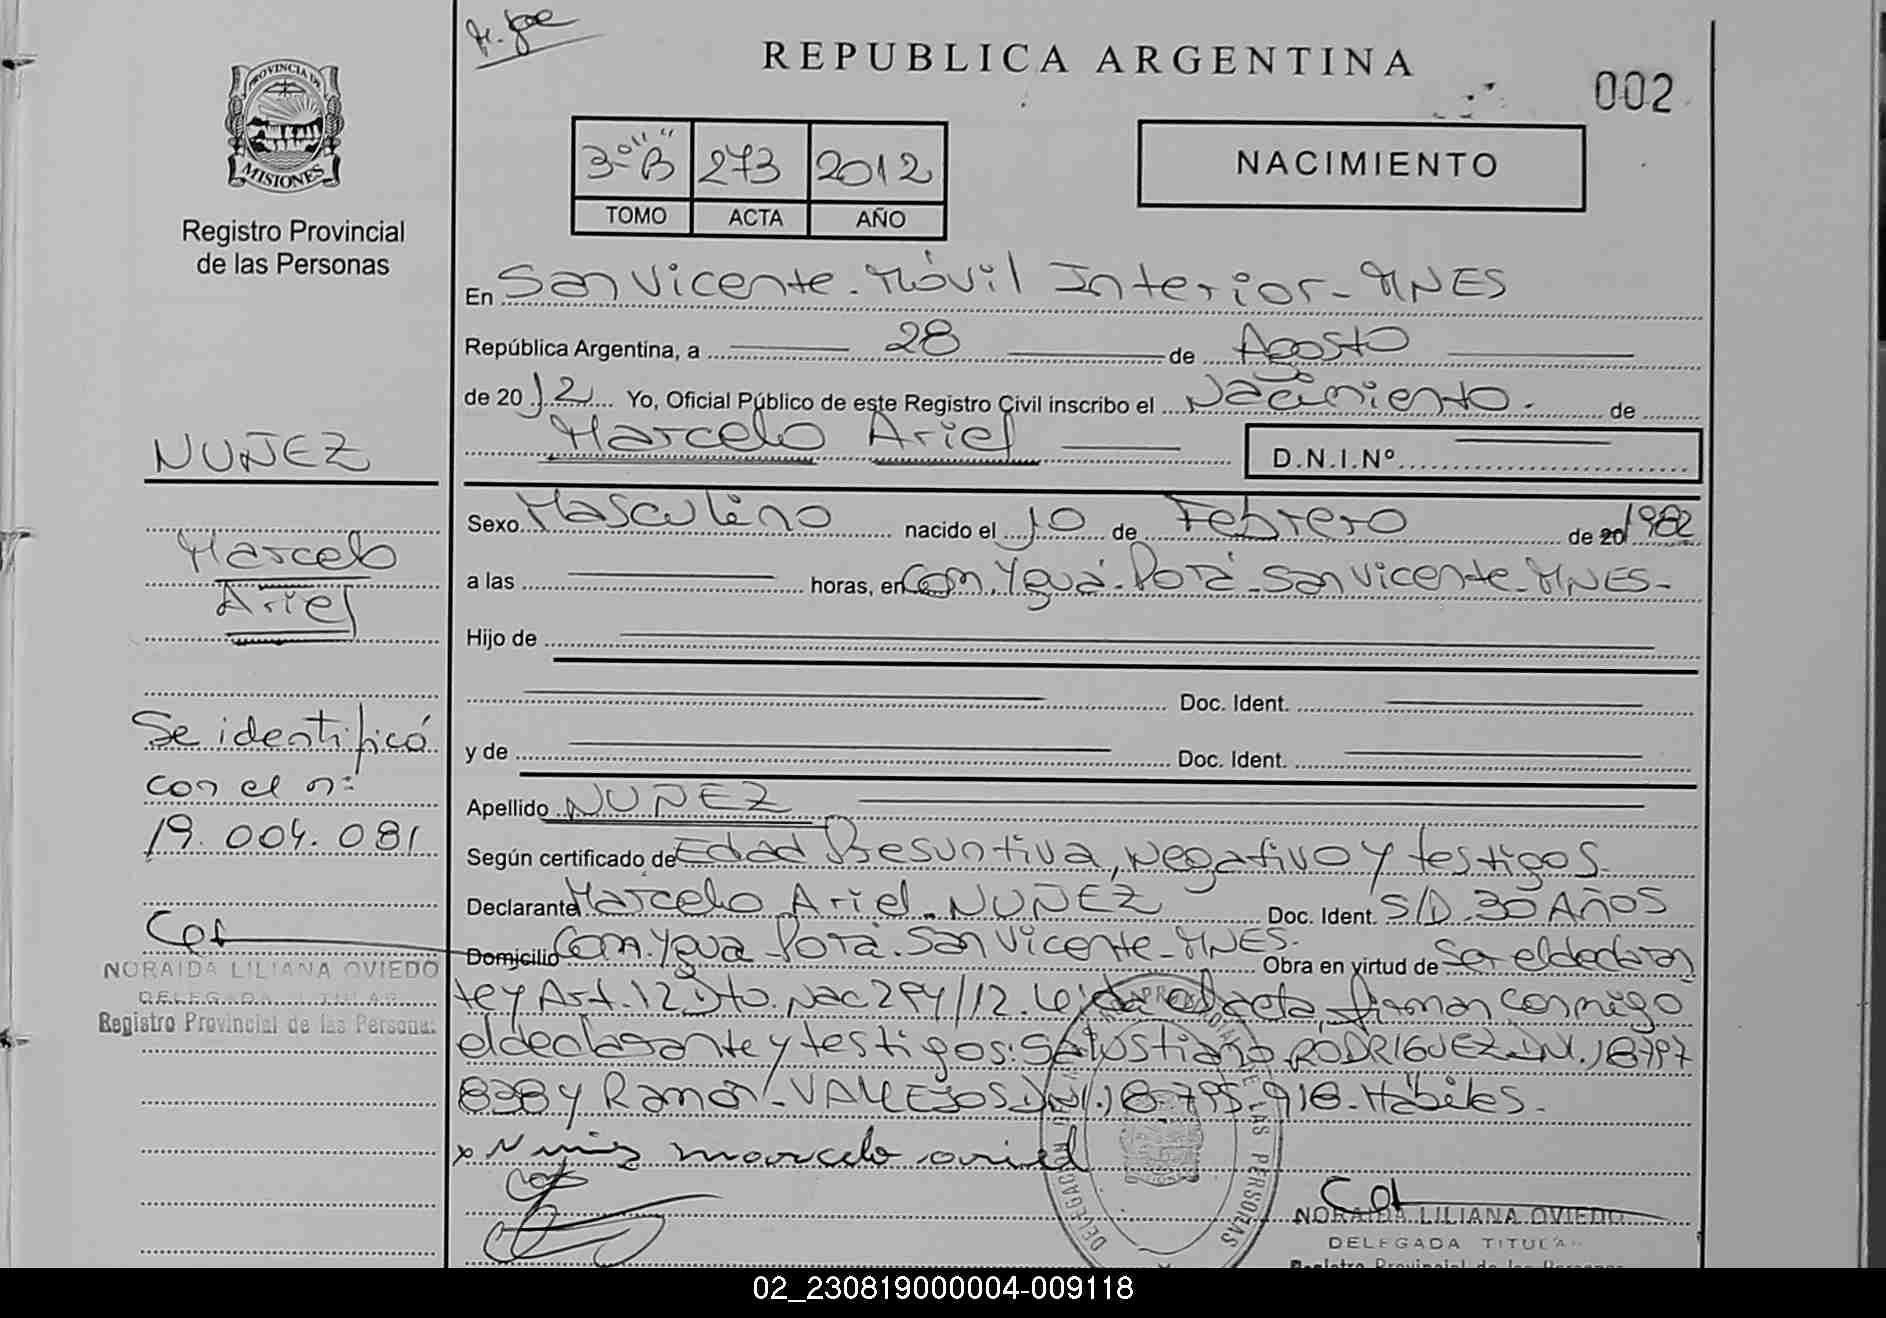 REPUBLICA ARGENTINA
002
PROVINCIA DE
MISIONES
Registro Provincial
de las Personas
3º "B" 273 2012
TOMO ACTA AÑO
NACIMIENTO
En San Vicente - Móvil Interior - MNES
República Argentina, a 28 de Agosto
de 2012 Yo, Oficial Público de este Registro Civil inscribo el Nacimiento. de
Marcelo Ariel
D.N.I.Nº
NUÑEZ
Marcelo
Ariel
Sexo Masculino nacido el 10 de Febrero de 20 1982
a las horas, en Com. Yguá - Porá - San Vicente - MNES -
Hijo de
Doc. Ident.
y de Doc. Ident.
Se identificó
con el nº
19.004.081
NORAIDA LILIANA OVIEDO
DELEGADA TITULAR
Registro Provincial de las Personas
Apellido NUÑEZ
Según certificado de Edad Presuntiva, Negativo y testigos -
Declarante Marcelo Ariel - NUÑEZ Doc. Ident. S/D - 30 AÑOS
Domicilio Com. Ygua - Porá - San Vicente - MNES - Obra en virtud de Ser el declaran
te y Art. 12 Dto. Nac 294/12. Leída el acta, firman conmigo
el declarante y testigos: Salustiano - RODRIGUEZ DNI. 18797
838 y Ramón - VALLEJOS DNI. 18-795-918 - Hábiles -
x Nuñez marcelo ariel
DELEGAC
LAS PERSONAS
NORAIDA LILIANA OVIEDO
DELEGADA TITULAR
Registro Provincial de las Personas
02_230819000004-009118